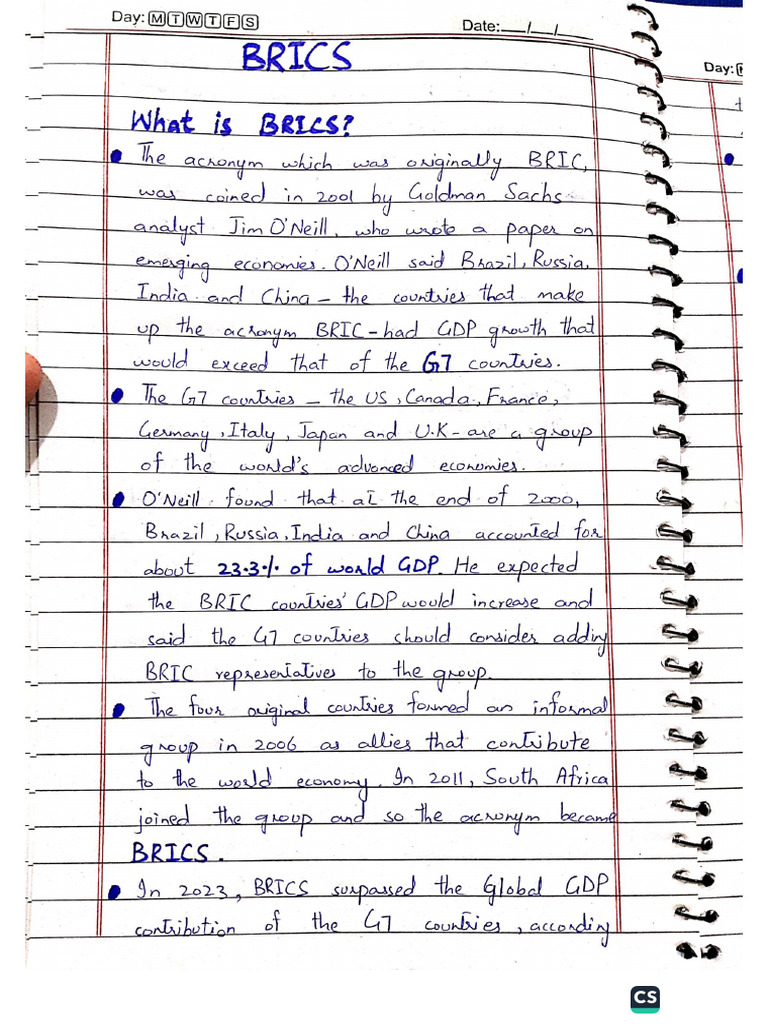 Day: M T W T F S
Date:__/__/__
Day:
BRICS
What is BRICS?
• The acronym which was originally BRIC,
was coined in 2001 by Goldman Sachs
analyst Jim O'Neill, who wrote a paper on
emerging economies. O'Neill said Brazil, Russia,
India and China - the countries that make
up the acronym BRIC - had GDP growth that
would exceed that of the G7 countries.
• The G7 countries - the US, Canada, France,
Germany, Italy, Japan and U.K - are a group
of the world's advanced economies.
• O'Neill found that at the end of 2000,
Brazil, Russia, India and China accounted for
about 23.3% of world GDP. He expected
the BRIC countries' GDP would increase and
said the G7 countries should consider adding
BRIC representatives to the group.
• The four original countries formed an informal
group in 2006 as allies that contribute
to the world economy. In 2011, South Africa
joined the group and so the acronym became
BRICS.
• In 2023, BRICS surpassed the Global GDP
contribution of the G7 countries, according
CS